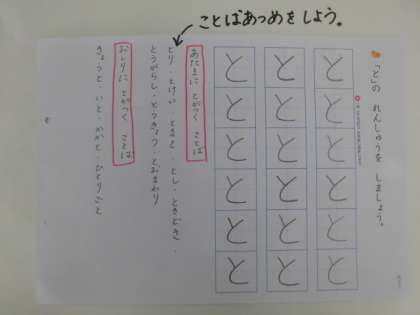 ことばあつめをしよう。
「と」の れんしゅうを しましょう。
と と と と と と
と と と と と と
と と と と と と
あたまに とがつく ことば
とり・とけい・とまと・とし・ときどき・
とうがらし・とうきょう・とおまわり
おしりに とがつく ことば
きょうと・いと・かかと・ひとりごと